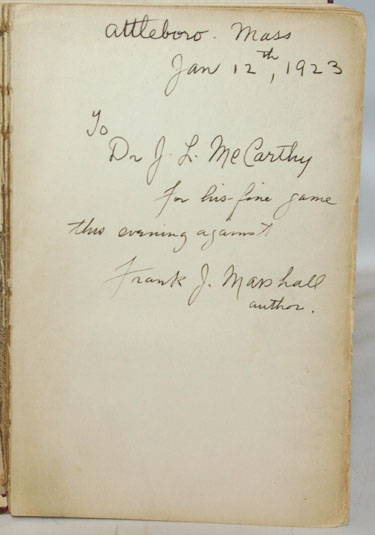 Attleboro. Mass
Jan 12th, 1923
To
Dr J. L. McCarthy
for his fine game
this evening against
Frank J. Marshall
author.